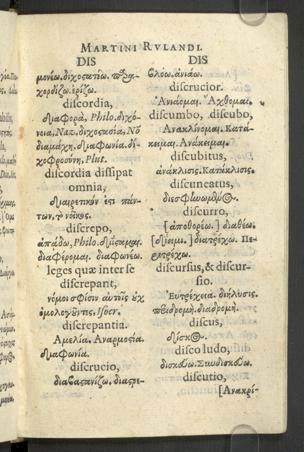 MARTINI RVLANDI.
DIS
μονέω. διχοστατέω.
χορδίζω. ἐρίζω.
discordia,
διαφορά, Philo. διχό-
νοια, Naz. διχοστασία, Νο
διαμάχη. διαφωνία. δι-
χοφροσύνη, Plut.
discordia dissipat
omnia,
διαιρετικὸν ἐστι πάν-
των, τὸ νεῖκος.
discrepo,
ἀπᾴδω, Philo. διίσταμαι.
διαφέρομαι. διαφωνέω.
leges quæ inter se
discrepant,
νόμοι σφίσιν αὐτοῖς οὐχ
ὁμολογοῦντες, Isocr.
discrepantia.
Ἀμελία. Ἀναρμοστία.
διαφωνία.
discrucio,
διαβασανίζω. διαστρε-
DIS
βλόω. ἀνιάω.
discrucior.
Ἀνιάομαι. Ἄχθομαι.
discumbo, discubo,
Ἀνακλίνομαι. Κατά-
κειμαι. Ἀνάκειμαι.
discubitus,
ἀνάκλισις. Κατάκλισις.
discuneatus,
διεσφηνωμένος.
discurro,
[ἀποθορέω.] διαθέω.
[δίειμι.] διατρέχω. Πε-
ριτρέχω.
discursus, & discur-
sio.
Εὐτρέχεια. διήλυσις.
περιδρομή. διαδρομή.
discus,
δίσκος.
disco ludo,
δισκόω. Συνδισκόω.
discutio,
[Ἀνακρί-